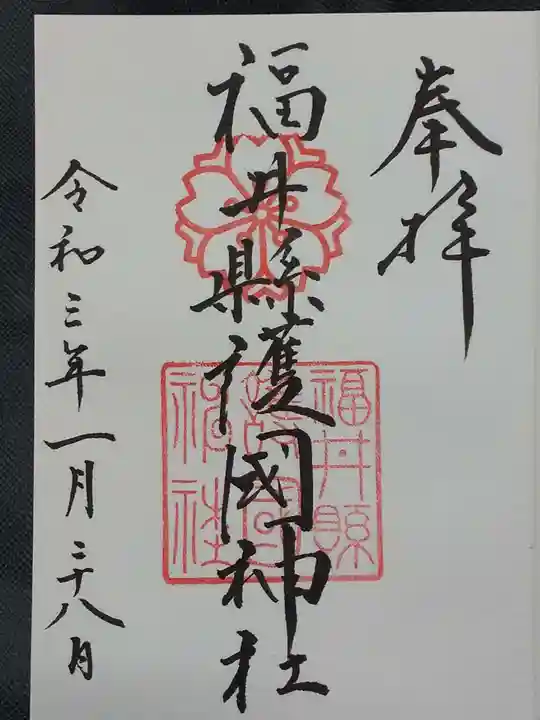 奉拝
福井縣護國神社
福井縣
護國
神社
令和三年一月二十八日